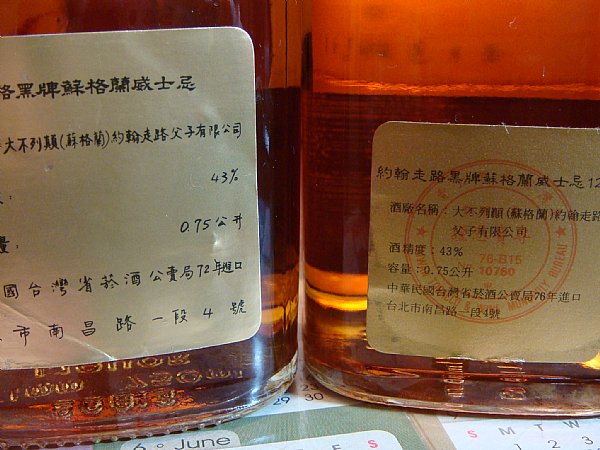 格黑牌蘇格蘭威士忌
大不列顛(蘇格蘭)約翰走路父子有限公司
43%
0.75公升
國台灣省菸酒公賣局72年進口
市南昌路一段4號
約翰走路黑牌蘇格蘭威士忌12
酒廠名稱:大不列顛(蘇格蘭)約翰走路
父子有限公司
酒精度:43%
容量:0.75公升
中華民國台灣省菸酒公賣局76年進口
台北市南昌路一段4號
76-B15
10760
BUREAU
29 30
6 June
E S
S M T W
1 2 3